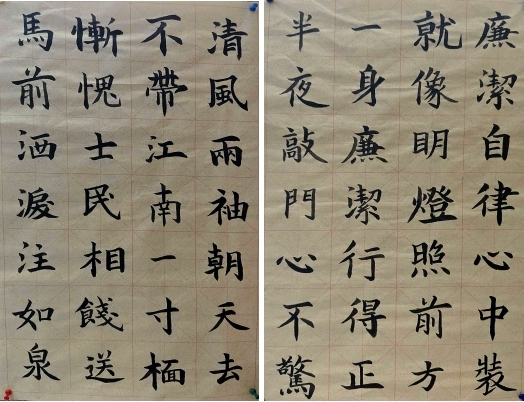 廉潔自律心中裝
就像明燈照前方
一身廉潔行得正
半夜敲門心不驚
清風兩袖朝天去
不帶江南一寸棉
慚愧士民相餞送
馬前洒淚注如泉